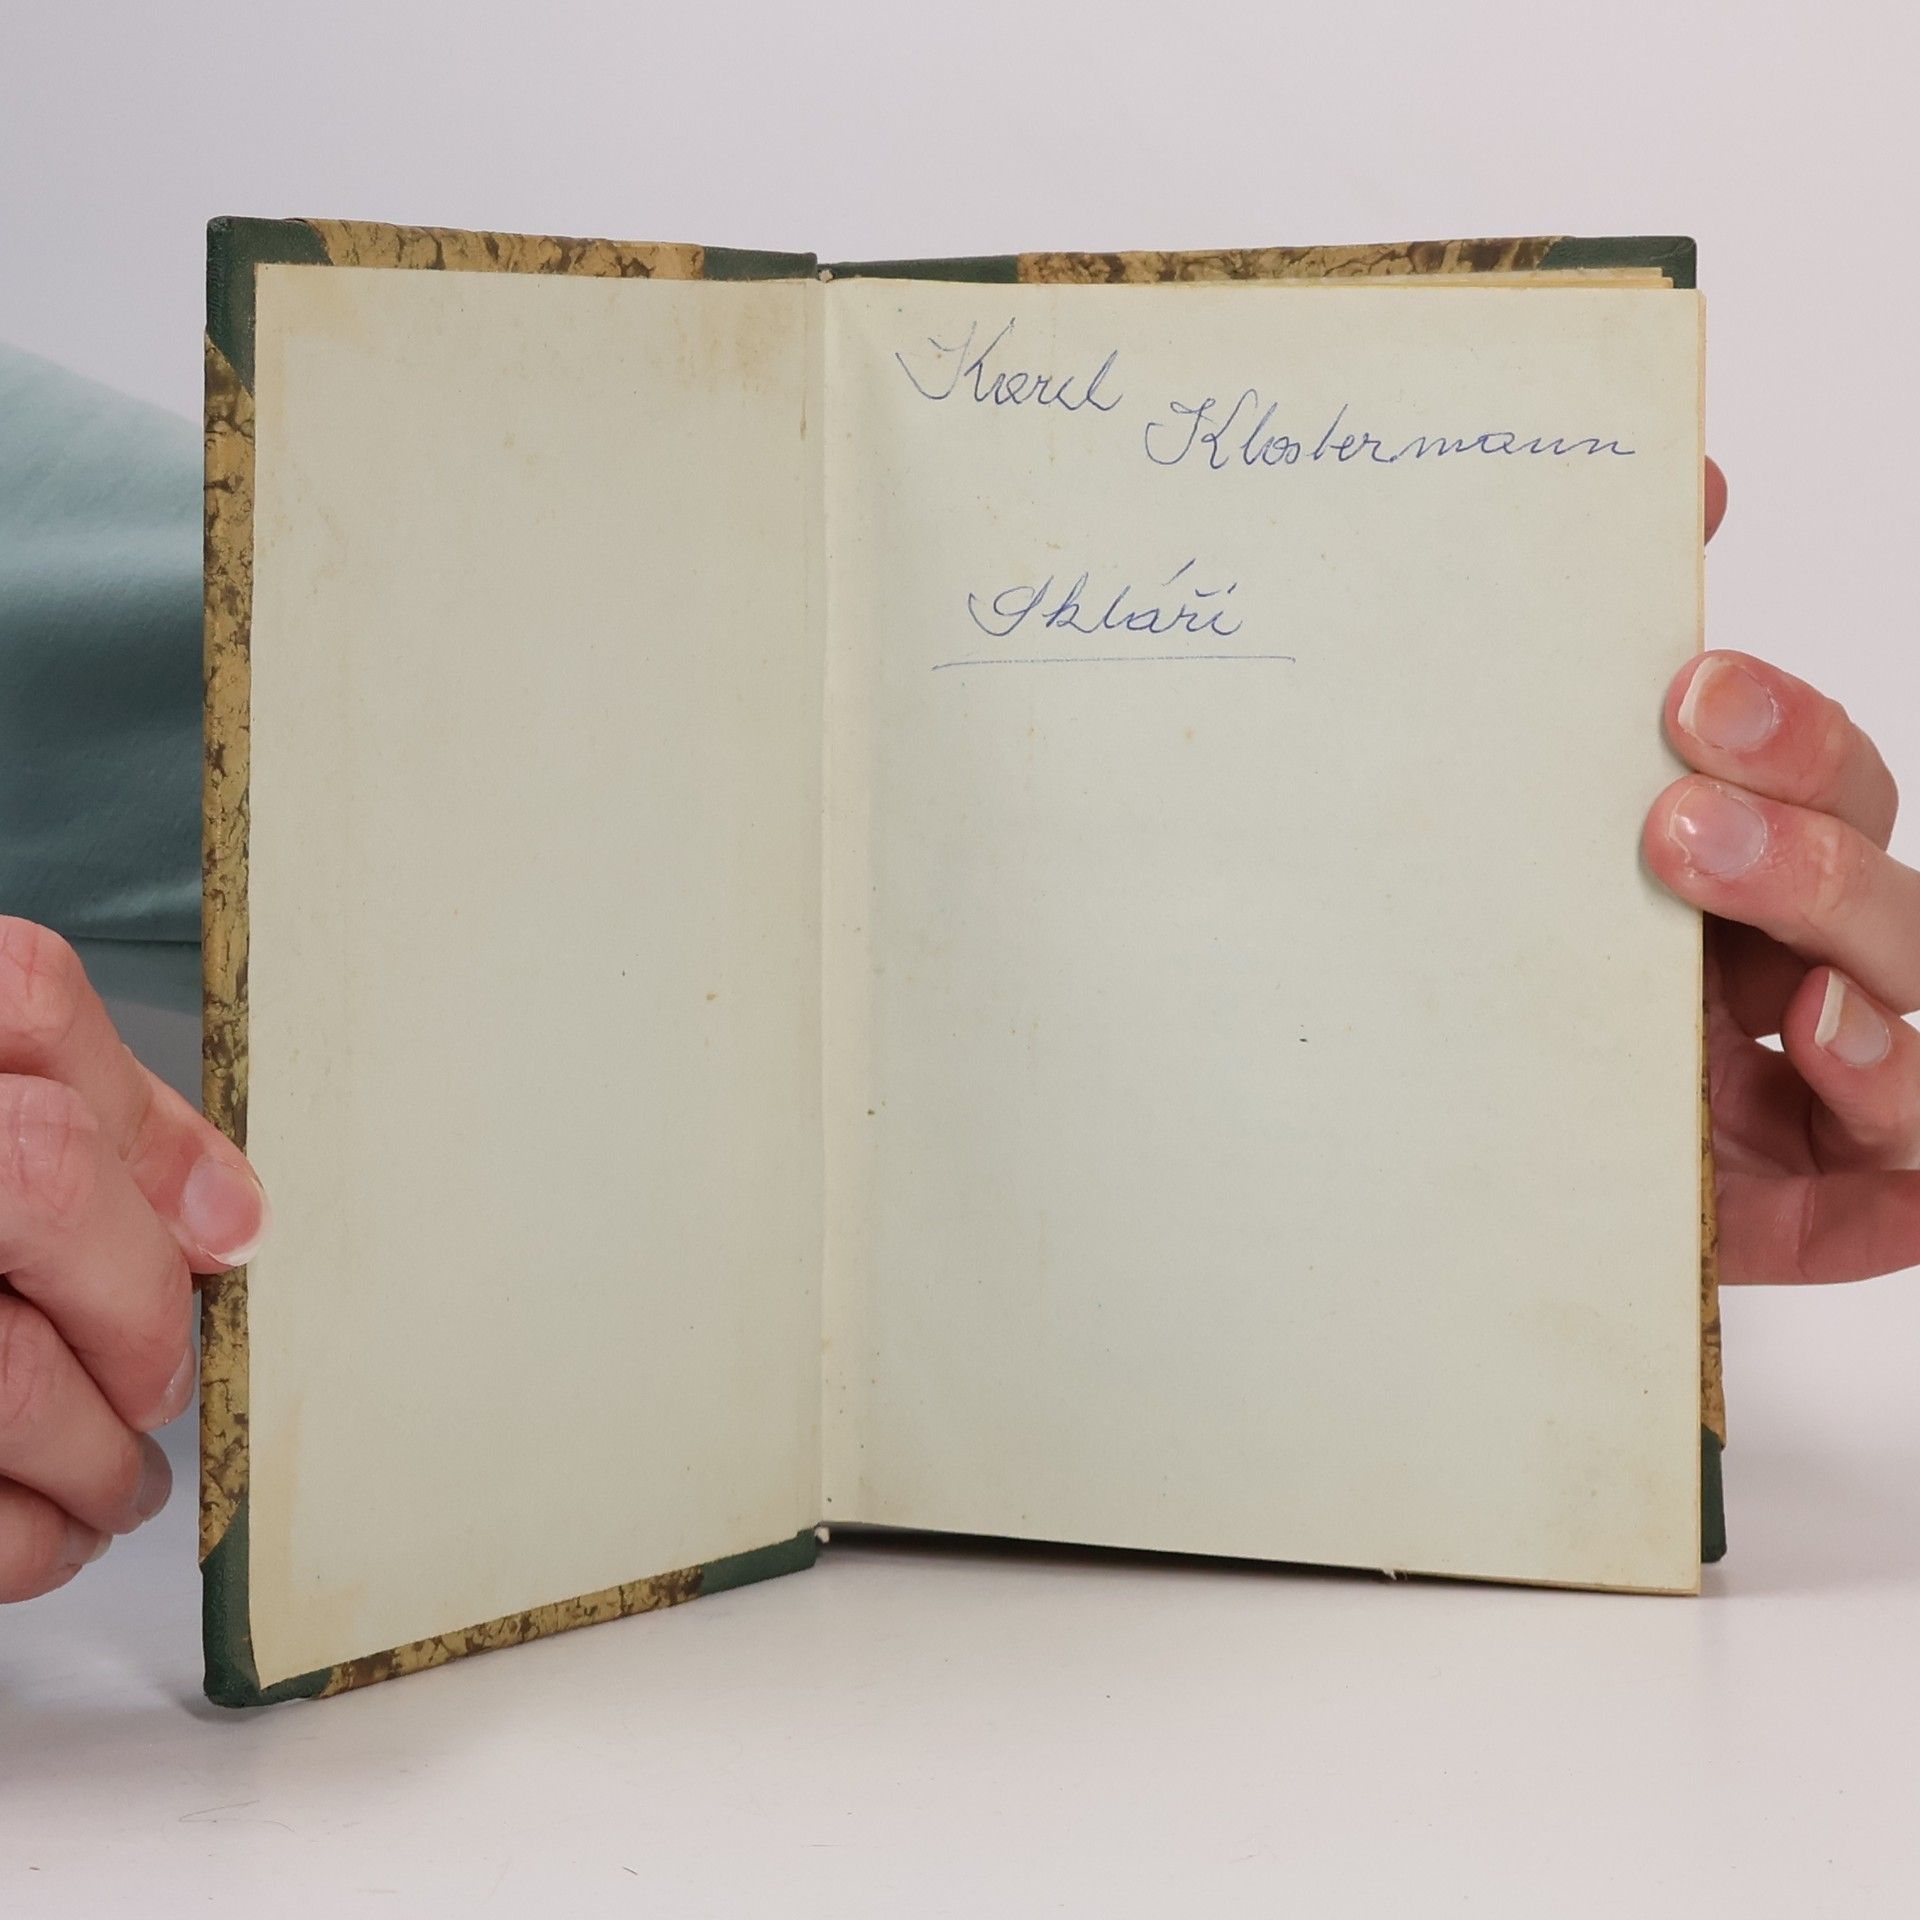 Karel
Klostermann
Skláři